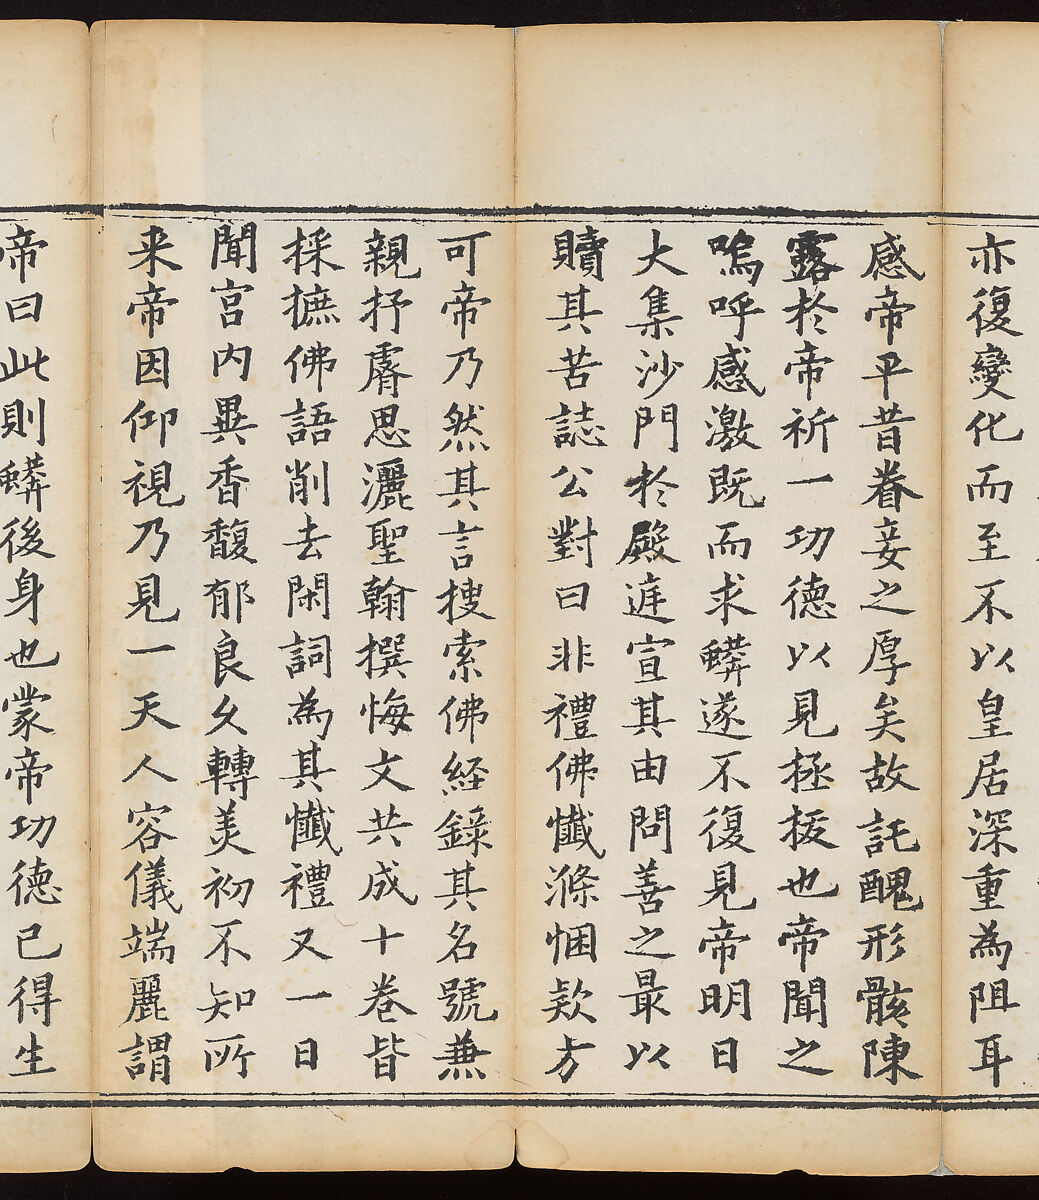 亦復變化而至不以皇居深重為阻耳
感帝平昔眷妾之厚矣故託醜形骸陳
露於帝祈一功德以見拯拔也帝聞之
嗚呼感激既而求蟒遂不復見帝明日
大集沙門於殿庭宣其由問善之最以
贖其苦誌公對曰非禮佛懺滌悃欵方
可帝乃然其言搜索佛經錄其名號兼
親抒睿思灑聖翰撰悔文共成十卷皆
採摭佛語削去閑詞為其懺禮又一日
聞宮內異香馥郁良久轉美初不知所
来帝因仰視乃見一天人容儀端麗謂
帝曰此則蟒後身也蒙帝功德已得生